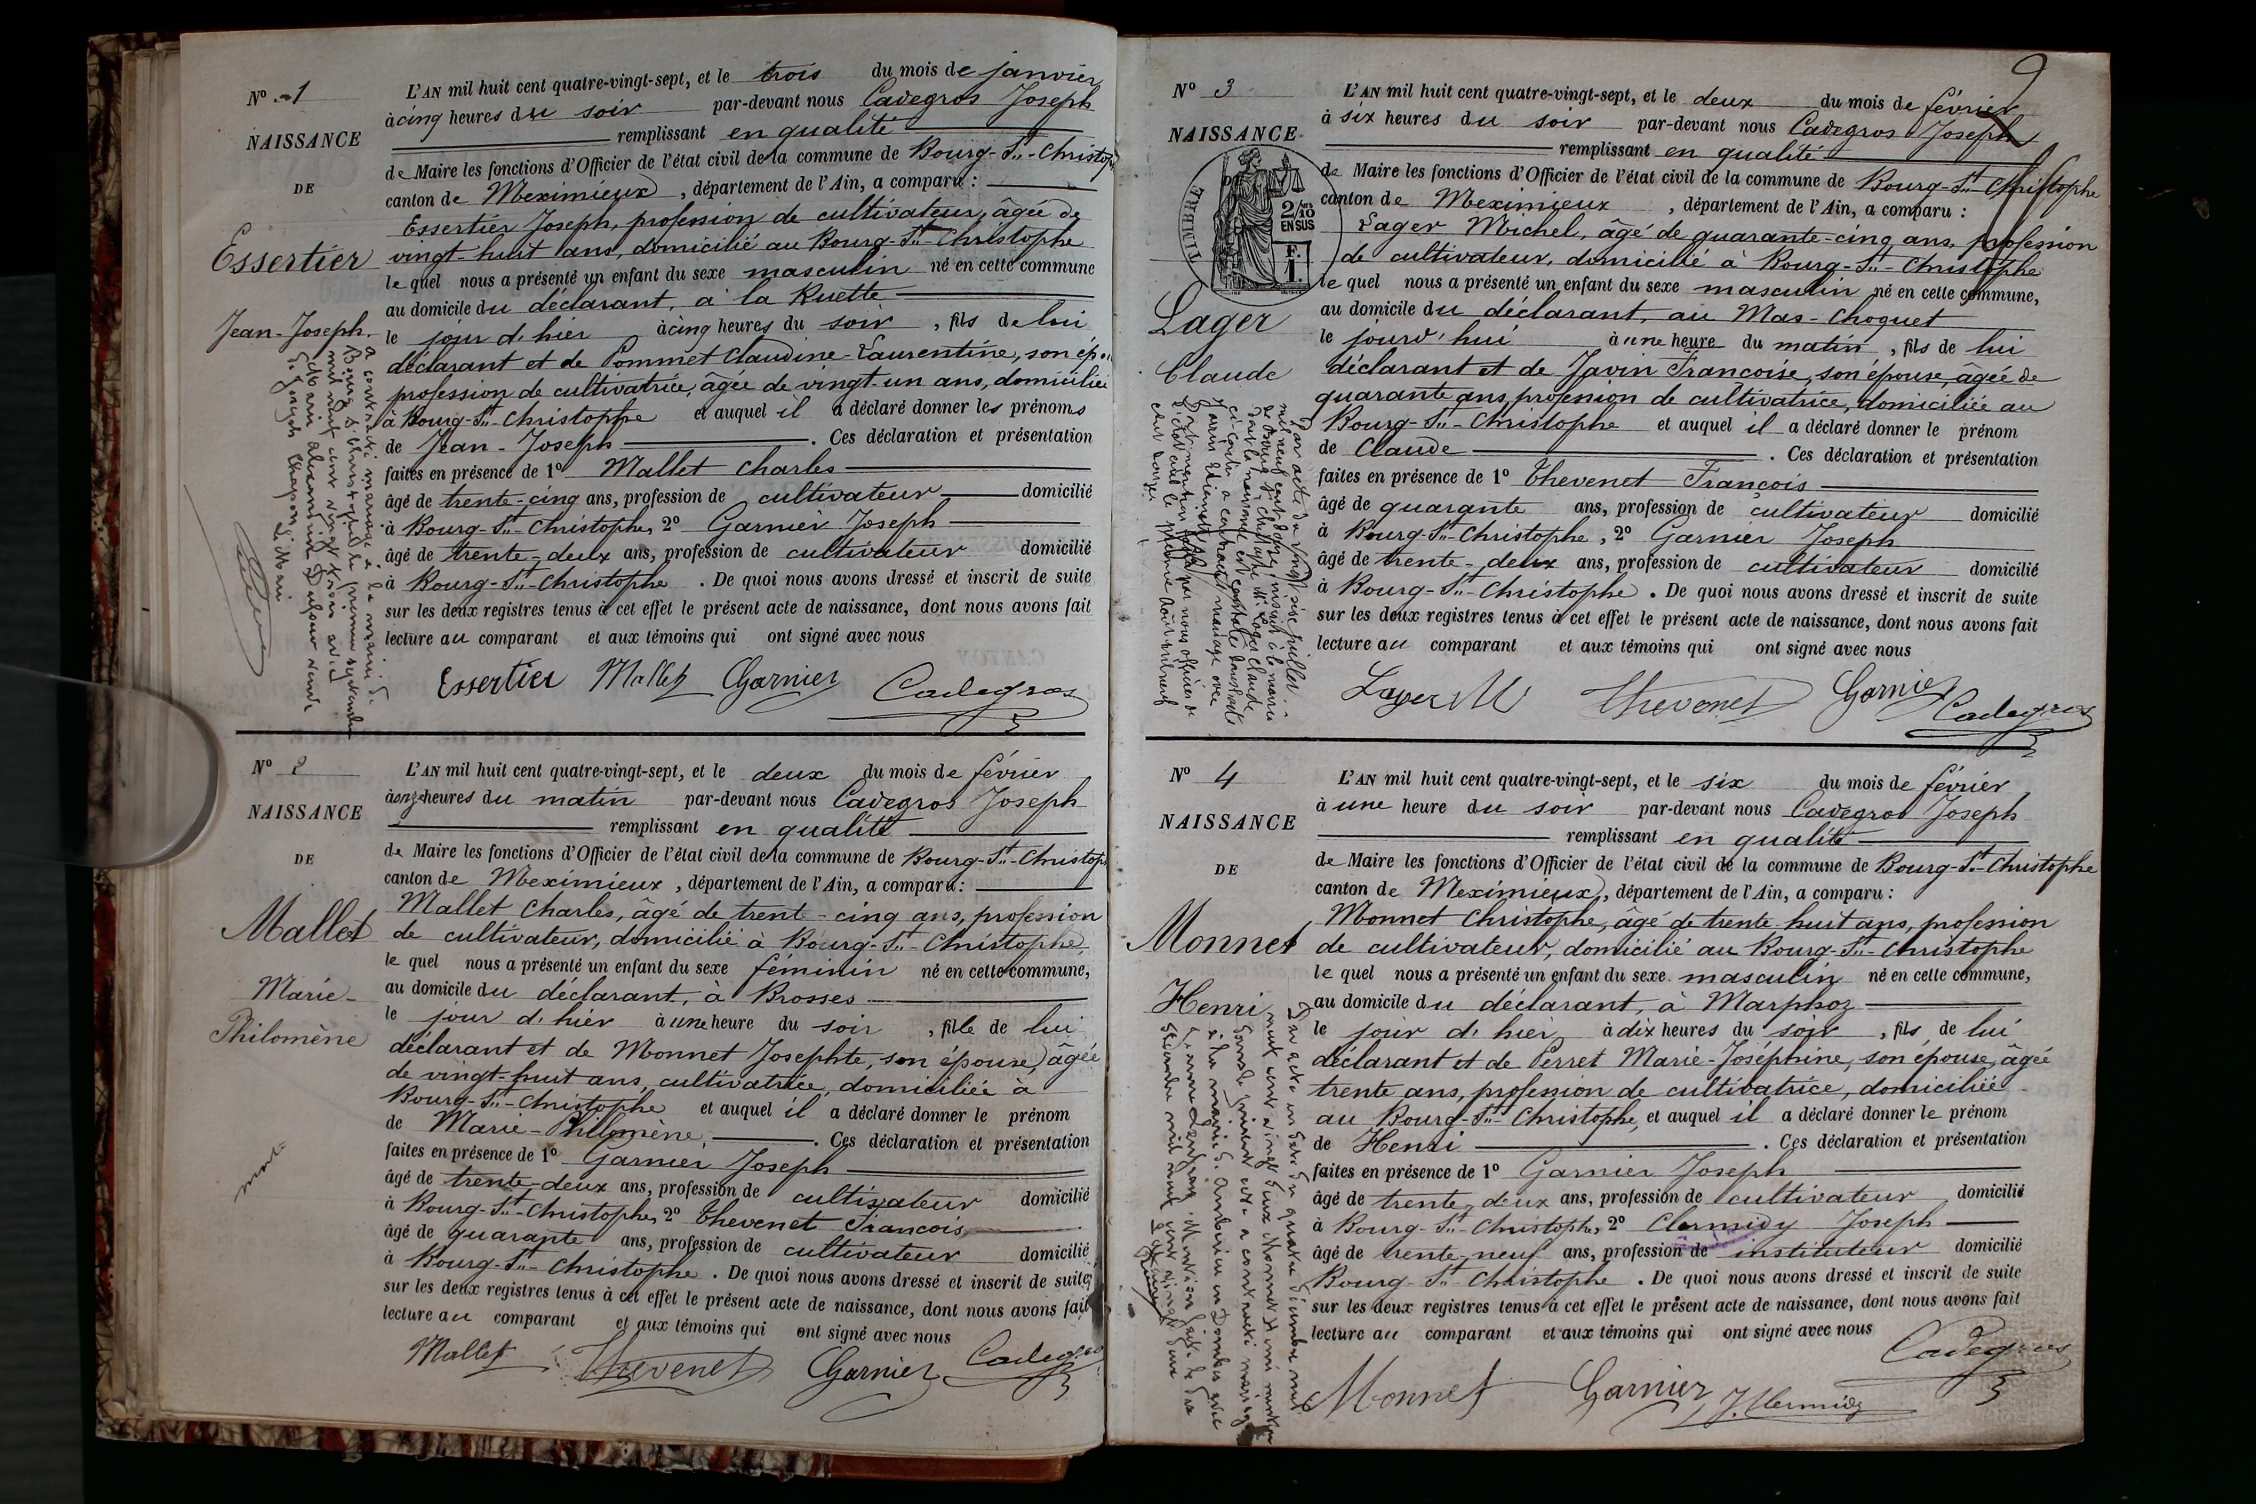 Nº 1
NAISSANCE
DE
Essertier
Jean-Joseph.
a contracté mariage à la mairie de
Bourg St Christophe le premier septembre
mil neuf cent vingt trois avec
Marie
L'AN mil huit cent quatre-vingt-sept, et le trois du mois de janvier
à cinq heures du soir par-devant nous Cadegros Joseph
remplissant en qualité
de Maire les fonctions d'Officier de l'état civil de la commune de Bourg-St-Christophe
canton de Meximieux, département de l'Ain, a comparu :
Essertier Joseph, profession de cultivateur, âgée de
vingt-huit ans, domicilié au Bourg-St-Christophe
le quel nous a présenté un enfant du sexe masculin né en cette commune
au domicile du déclarant, à la Ruette
le jour d'hier à cinq heures du soir, fils de lui
déclarant et de Pommet Claudine-Laurentine, son épouse
profession de cultivatrice, âgée de vingt-un ans, domiciliée
à Bourg-St-Christophe et auquel il a déclaré donner les prénoms
de Jean-Joseph. Ces déclaration et présentation
faites en présence de 1º Mallet Charles
âgé de trente-cinq ans, profession de cultivateur domicilié
à Bourg-St-Christophe, 2º Garnier Joseph
âgé de trente-deux ans, profession de cultivateur domicilié
à Bourg-St-Christophe. De quoi nous avons dressé et inscrit de suite
sur les deux registres tenus à cet effet le présent acte de naissance, dont nous avons fait
lecture au comparant et aux témoins qui ont signé avec nous
Essertier Mallet Garnier Cadegros
Nº 2
NAISSANCE
DE
Mallet
Marie-
Philomène
L'AN mil huit cent quatre-vingt-sept, et le deux du mois de février
à onze heures du matin par-devant nous Cadegros Joseph
remplissant en qualité
de Maire les fonctions d'Officier de l'état civil de la commune de Bourg-St-Christophe
canton de Meximieux, département de l'Ain, a comparu :
Mallet Charles, âgé de trent-cinq ans, profession
de cultivateur, domicilié à Bourg-St-Christophe
le quel nous a présenté un enfant du sexe féminin né en cette commune,
au domicile du déclarant, à Brosses
le jour d'hier à une heure du soir, fille de lui
déclarant et de Monnet Josephte, son épouse, âgée
de vingt-huit ans, cultivatrice, domiciliée à
Bourg-St-Christophe et auquel il a déclaré donner le prénom
de Marie-Philomène. Ces déclaration et présentation
faites en présence de 1º Garnier Joseph
âgé de trente-deux ans, profession de cultivateur domicilié
à Bourg-St-Christophe, 2º Thevenet François
âgé de quarante ans, profession de cultivateur domicilié
à Bourg-St-Christophe. De quoi nous avons dressé et inscrit de suite,
sur les deux registres tenus à cet effet le présent acte de naissance, dont nous avons fait
lecture au comparant et aux témoins qui ont signé avec nous
Mallet Thevenet Garnier Cadegros
9
Nº 3
NAISSANCE
DE
TIMBRE
2/10
EN SUS
F.
1.
Lager
Claude
Par acte du vingt six juillet
mil neuf cent douze, inscrit à la mairie
de Bourg St Christophe Mr Lager Claude
dont la naissance est constatée dans l'acte
ci-contre a contracté mariage avec
L'AN mil huit cent quatre-vingt-sept, et le deux du mois de février
à six heures du soir par-devant nous Cadegros Joseph
remplissant en qualité
de Maire les fonctions d'Officier de l'état civil de la commune de Bourg-St-Christophe
canton de Meximieux, département de l'Ain, a comparu :
Lager Michel, âgé de quarante-cinq ans, profession
de cultivateur, domicilié à Bourg-St-Christophe
le quel nous a présenté un enfant du sexe masculin né en cette commune,
au domicile du déclarant, au Mas-Choquet
le jourd'hui à une heure du matin, fils de lui
déclarant et de Javin Françoise, son épouse, âgée de
quarante ans, profession de cultivatrice, domiciliée au
Bourg-St-Christophe et auquel il a déclaré donner le prénom
de Claude. Ces déclaration et présentation
faites en présence de 1º Thevenet François
âgé de quarante ans, profession de cultivateur domicilié
à Bourg-St-Christophe, 2º Garnier Joseph
âgé de trente-deux ans, profession de cultivateur domicilié
à Bourg-St-Christophe. De quoi nous avons dressé et inscrit de suite
sur les deux registres tenus à cet effet le présent acte de naissance, dont nous avons fait
lecture au comparant et aux témoins qui ont signé avec nous
Lager M Thevenet Garnier Cadegros
Nº 4
NAISSANCE
DE
Monnet
Henri
Par acte en date du quatre décembre mil
neuf cent vingt deux Monnet Henri
L'AN mil huit cent quatre-vingt-sept, et le six du mois de février
à une heure du soir par-devant nous Cadegros Joseph
remplissant en qualité
de Maire les fonctions d'Officier de l'état civil de la commune de Bourg-St-Christophe
canton de Meximieux, département de l'Ain, a comparu :
Monnet Christophe, âgé de trente-huit ans, profession
de cultivateur, domicilié au Bourg-St-Christophe
le quel nous a présenté un enfant du sexe masculin né en cette commune,
au domicile du déclarant, à Marphoz
le jour d'hier, à dix heures du soir, fils de lui
déclarant et de Perret Marie-Joséphine, son épouse, âgée
trente ans, profession de cultivatrice, domiciliée
au Bourg-St-Christophe, et auquel il a déclaré donner le prénom
de Henri. Ces déclaration et présentation
faites en présence de 1º Garnier Joseph
âgé de trente-deux ans, profession de cultivateur domicilié
à Bourg-St-Christophe, 2º Clermidy Joseph
âgé de trente-neuf ans, profession de instituteur domicilié
Bourg-St-Christophe. De quoi nous avons dressé et inscrit de suite
sur les deux registres tenus à cet effet le présent acte de naissance, dont nous avons fait
lecture au comparant et aux témoins qui ont signé avec nous
Monnet Garnier J. Clermidy Cadegros